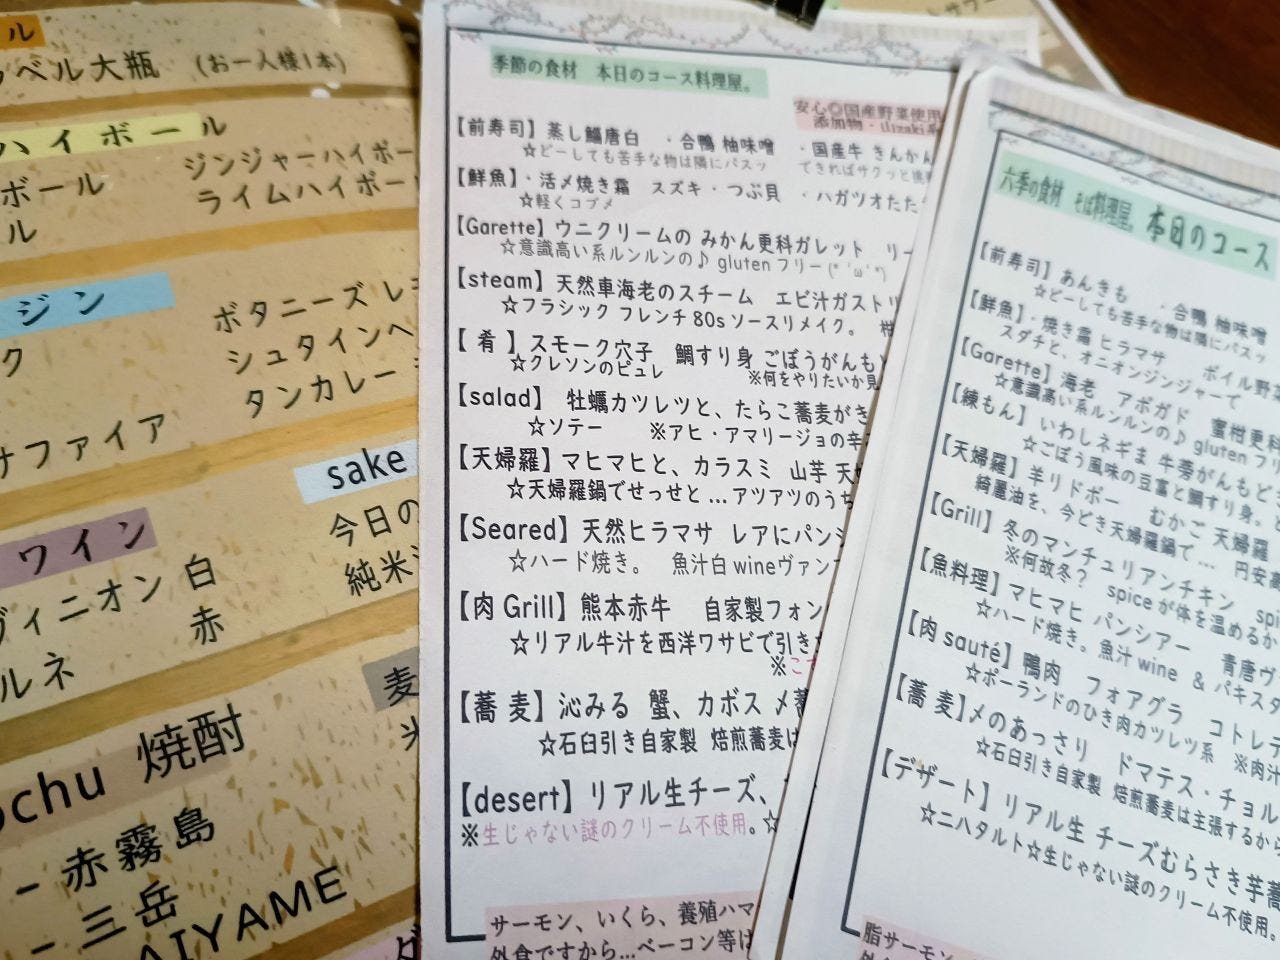 ル
ベル大瓶 (お一人様1本)
ハイボール
ボール
ジンジャーハイボー
ル
ライムハイボー
ジン
ク
ボタニーズ レ
シュタインヘ
タンカレー
サファイア
sake
今日の
純米
ワイン
ヴィニオン 白
赤
ルネ
麦
米
ochu 焼酎
- 赤霧島
- 三岳
AIYAME
季節の食材 本日のコース料理屋。
安心◎国産野菜使用
添加物・ilizaki系
【前寿司】蒸し鰮唐白 ・合鴨 柚味噌 ・国産牛 きんかん
☆どーしても苦手な物は隣にパスッ てきればサクッと挑
【鮮魚】・活〆焼き霜 スズキ・つぶ貝 ・ハガツオたた
☆軽くコブメ
【Garette】ウニクリームの みかん更科ガレット リー
☆意識高い系ルンルンの♪ gluten フリー(*´ω`*)
【steam】天然車海老のスチーム エビ汁ガストリ
☆フラシック フレンチ 80s ソースリメイク。 柑
【 肴 】スモーク穴子 鯛すり身 ごぼうがんも
☆クレソンのピュレ ※何をやりたいか見
【salad】 牡蠣カツレツと、たらこ蕎麦がき
☆ソテー ※アヒ・アマリージョの辛
【天婦羅】マヒマヒと、カラスミ 山芋 天
☆天婦羅鍋でせっせと…アツアツのうち
【Seared】天然ヒラマサ レアにパンシ
☆ハード焼き。 魚汁白 wineヴァン
【肉 Grill】熊本赤牛 自家製フォン
☆リアル牛汁を西洋ワサビで引き
※こ
【蕎 麦】沁みる 蟹、カボス 〆蕎
☆石臼引き自家製 焙煎蕎麦は
【desert】リアル生チーズ、
※生じゃない謎のクリーム不使用。☆
サーモン、いくら、養殖ハマ
外食ですから…ベーコン等は
六季の食材 そば料理屋。本日のコース
【前寿司】あんきも ・合鴨 柚味噌
☆どーしても苦手な物は隣にパスッ
【鮮魚】・焼き霜 ヒラマサ ボイル野菜
スダチと、オニオンジンジャーで
【Garette】海老 アボガド 蜜柑更科
☆意識高い系ルンルンの♪ gluten フリ
【練もん】いわしネギま 牛蒡がんもど
☆ごぼう風味の豆富と鯛すり身。
【天婦羅】羊リドボー むかご 天婦羅
綺麗油を、今どき天婦羅鍋で… 円安高
【Grill】冬のマンチュリアンチキン spi
※何故冬? spice が体を温めるか
【魚料理】マヒマヒ パンシアー 青唐ヴ
☆ハード焼き。魚汁 wine & パキスタ
【肉 sauté】鴨肉 フォアグラ コトレテ
☆ポーランドのひき肉カツレツ系 ※肉汁
【蕎 麦】〆のあっさり ドマテス・チョル
☆石臼引き自家製 焙煎蕎麦は主張するから
【デザート】リアル生 チーズむらさき芋蕎
☆ニハタルト☆生じゃない謎のクリーム不使用。
脂サーモン